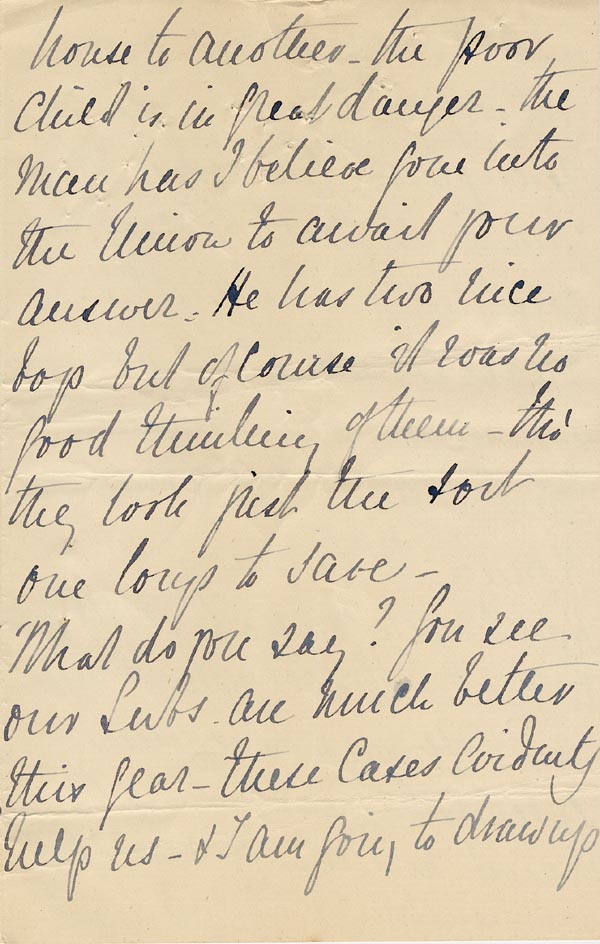 house to another - the poor
Child is in great danger - the
Man has I believe gone into
the Union to await your
answer - He has two nice
boys but of course it was no
good thinking of them - tho'
they look just the sort
one longs to save -
What do you say? You see
our Subs. are much better
this year - these Cases Evidently
help us - & I am going to draw up